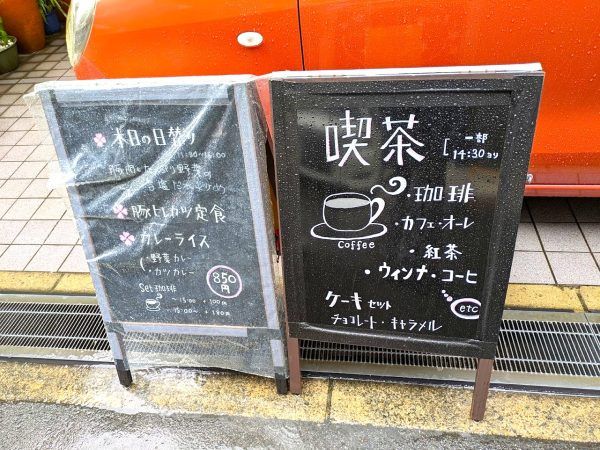 本日の日替り
豚ヒレカツ定食
カレーライス
野菜カレー
・カツカレー
850円
Set珈琲
〜15:00 +100円
15:00〜
喫茶
一部
14:30より
・珈琲
・カフェ・オーレ
・紅茶
・ウィンナ・コーヒ
etc
Coffee
ケーキセット
チョコレート・キャラメル